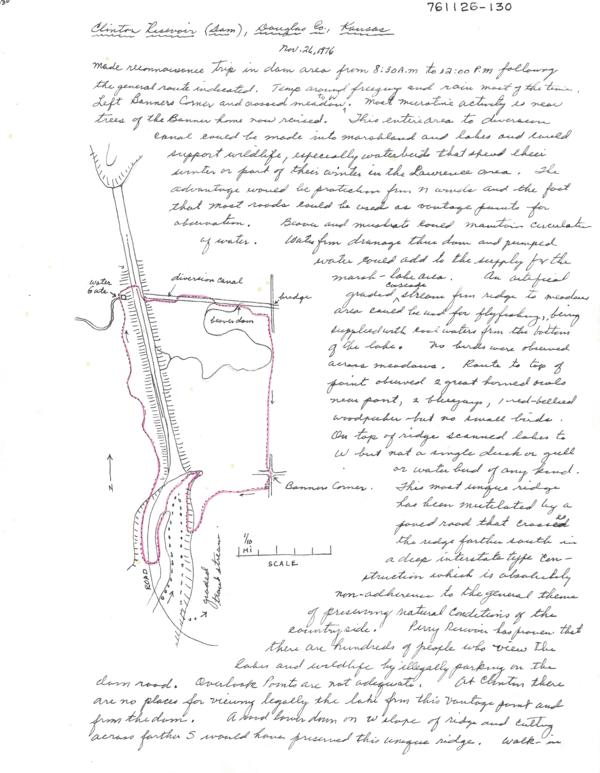 761126-130
Clinton Resevoir (Dam), Douglas Co., Kansas
Nov. 26, 1976
Made reconnaissence trip in dam area from 8:30 A.M to 12:00 P.M following
the general route indicated. Temp around freezing and rain most of the time.
Left Banners Corner and crossed meadow to W. Most microtine activity is near
trees of the Banner home now raised. This entire area to diversion
canal could be made into marshland and lakes and would
support wildlife, especially waterbirds that spend their
winter or part of their winter in the Lawrence area. The
advantage would be protection from N winds and the fact
that most roads could be used as vantage points for
observation. Beaver and muskrats could maintain circulation
of water. Water from drainage thru dam and pumped
water could add to the supply for the
marsh-lake area. An artificial
graded cascade stream from ridge to meadow
area could be used for flyfishing, being
supplied with cool waters from the bottom
of the lake. No birds were observed
across meadows. Route to top of
point observed 2 great horned owls
near point, 2 bluejays, 1 red-bellied
woodpecker - but no small birds.
On top of ridge scanned lakes to
W but not a single duck or gull
or water bird of any kind.
This most unique ridge
has been mutilated by a
paved road that crosses
the ridge farther south in
a deep interstate type con-
struction which is absolutely
non-adherence to the general theme
of preserving natural conditions of the
countryside. Perry Resevoir has proven that
there are hundreds of people who view the
lakes and wildlife by illegally parking on the
dam road. Overlook Points are not adequate. At Clinton there
are no places for viewing legally the lake from this vantage point and
from the dam. A road lower down on W slope of ridge and cutting
across farther S would have preserved this unique ridge. Walk-in
water
gate
diversion canal
bridge
beaver dam
N
Banners Corner
1/10
Mi
SCALE
ROAD
graded
trout stream